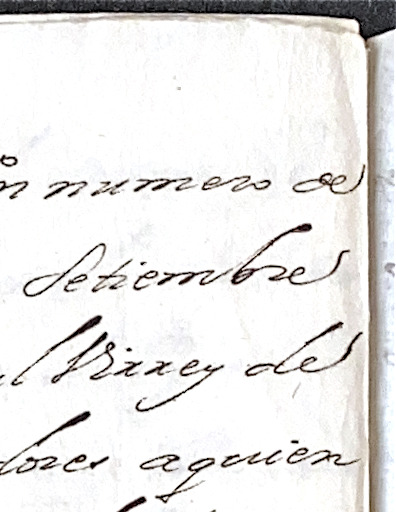 numero de
Setiembre
Virrey de
dores aquien